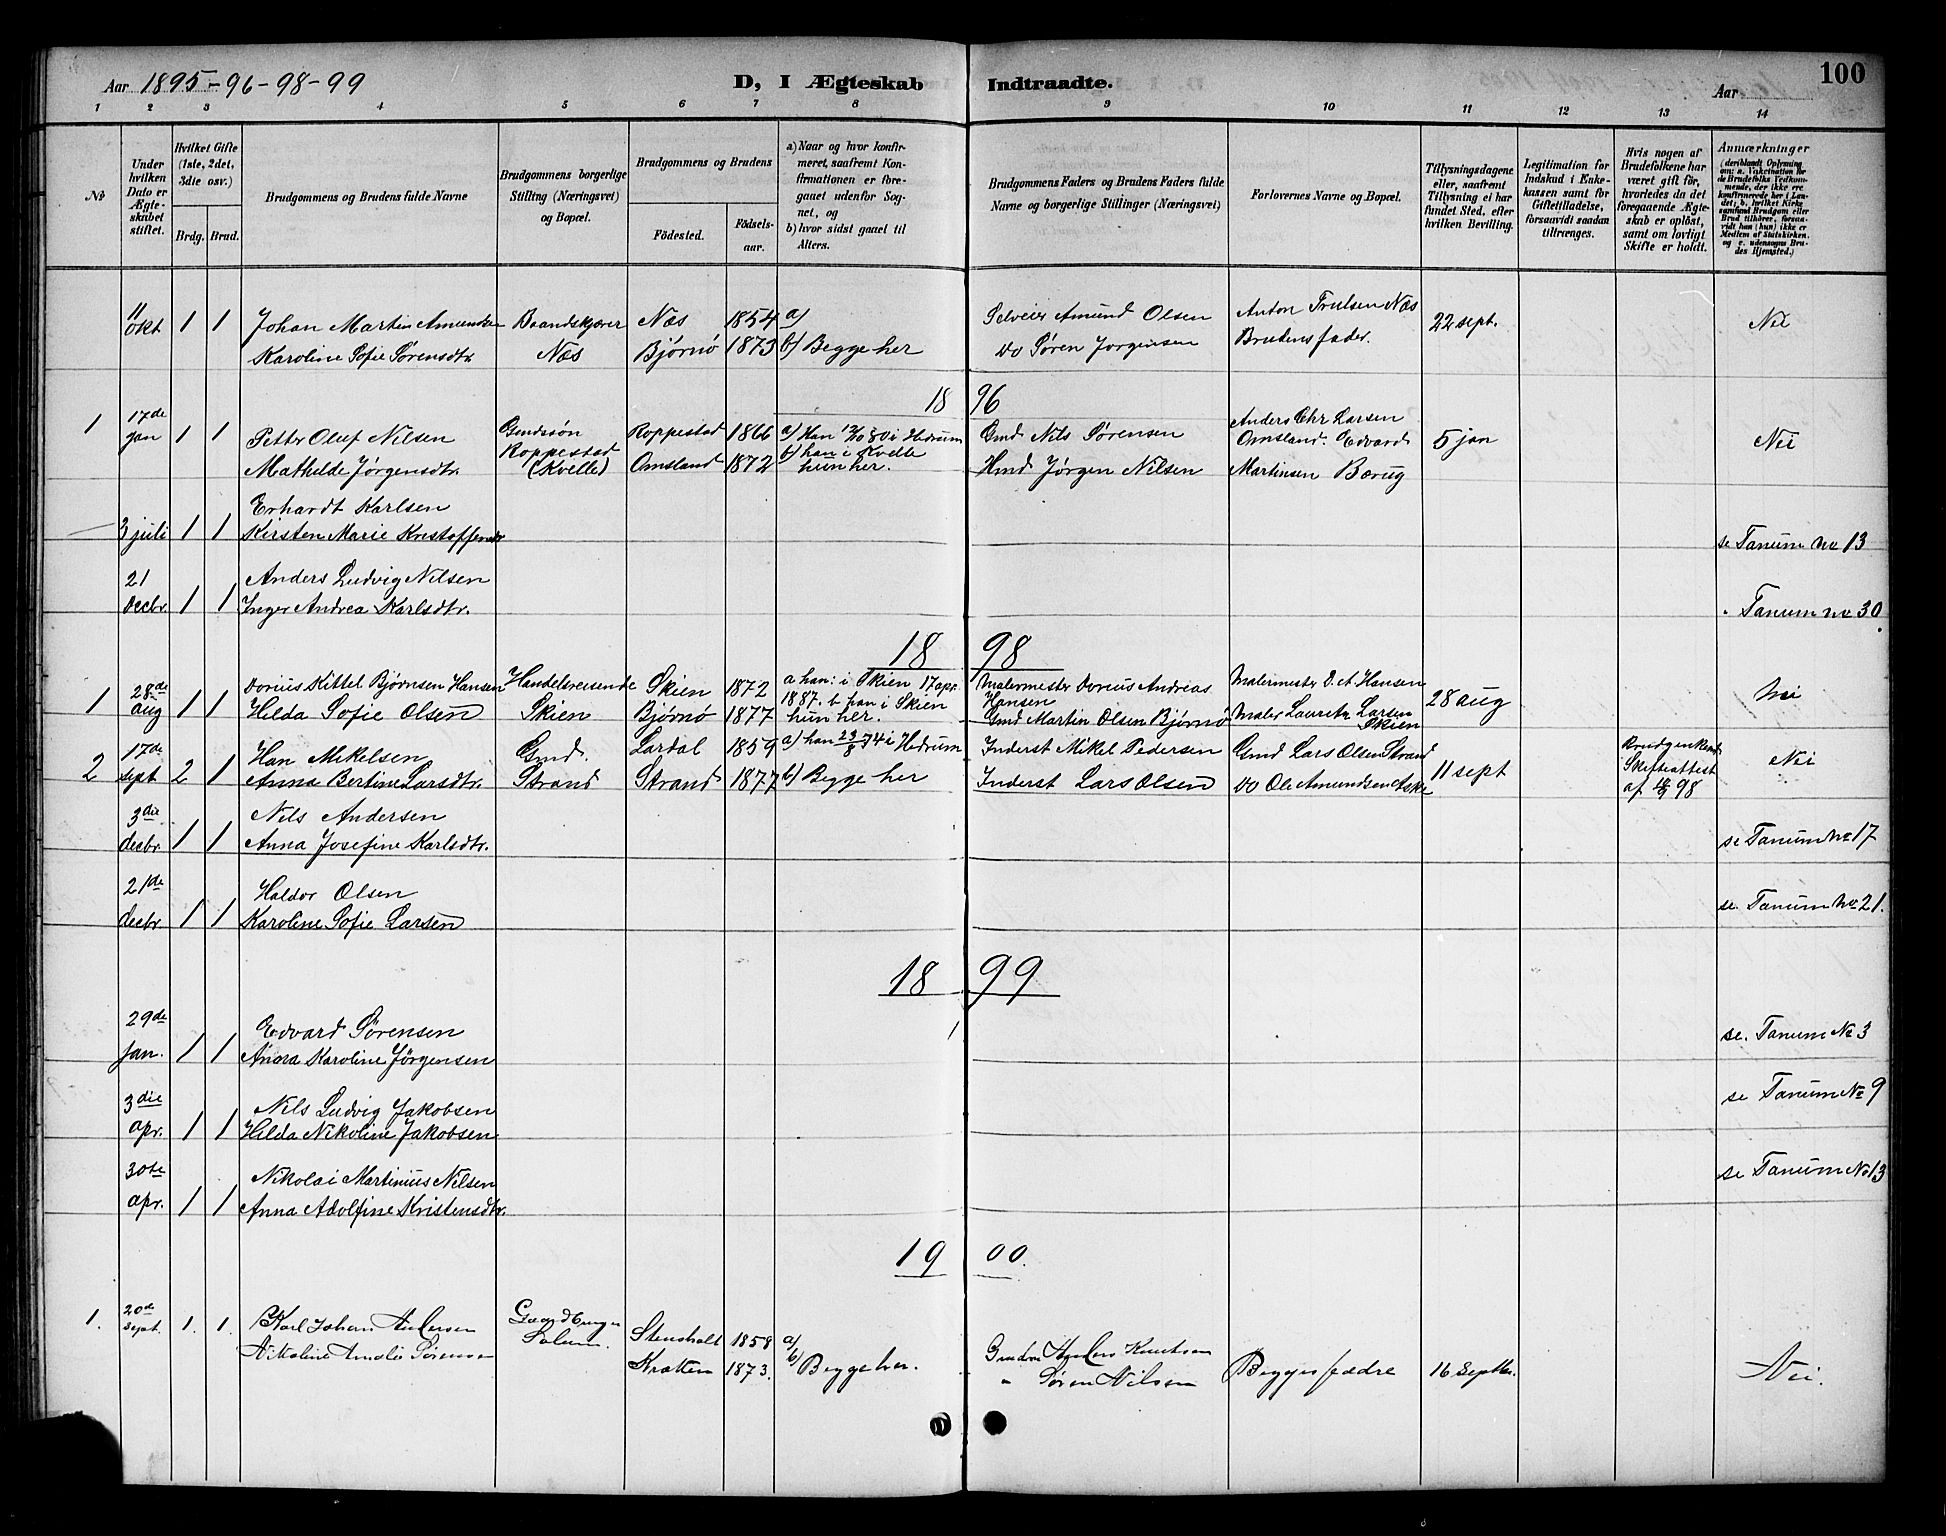 Aar 1895-96-98-99
D, I Ægteskab Indtraadte.
Aar
100
1 2 3 4 5 6 7 8 9 10 11 12 13 14
No
Under hvilken Dato er Ægteskabet stiftet.
Hvilket Gifte (1ste, 2det, 3die osv.)
Brdg. Brud.
Brudgommens og Brudens fulde Navne
Brudgommens borgerlige Stilling (Næringsvei) og Bopæl.
Brudgommens og Brudens
Fødested.
Fødsels-aar.
a) Naar og hvor konfirmeret, saafremt Konfirmationen er foregaaet udenfor Sognet, og
b) hvor sidst gaaet til Alters.
Brudgommens Faders og Brudens Faders fulde Navne og borgerlige Stillinger (Næringsvei)
Forlovernes Navne og Bopæl.
Tillysningsdagene eller, saafremt Tillysning ei har fundet Sted, efter hvilken Bevilling.
Legitimation for Indskud i Enkekassen samt for Giftetilladelse, forsaavidt saadan tiltrænges.
Hvis nogen af Brudefolkene har været gift før, hvorledes da det foregaaende Ægteskab er opløst, samt om lovligt Skifte er holdt.
Anmærkninger
(deriblandt Oplysning om: a. Vakcination for de Brudefolks Vedkommende, der ikke ere konfirmerede her i Landet; b. hvilket Kirkesamfund Brudgom eller Brud tilhører, forsaavidt han (hun) ikke er Medlem af Statskirken, og c. udensogns Brudes Hjemsted.)
11 okt 1 1 Johan Martin Amundsen Brandskjærer Næs 1854 a) Selveier Amund Olsen Anton Trulsen Næs 22 sept. Nei
Karoline Sofie Sørensdtr. Næs Bjørnø 1873 b) Begge her Do Søren Jørgensen Brudens fader.
18 96
1 17de jan 1 1 Petter Oluf Nilsen Gmdssøn Roppestad 1866 a) Han 12/10 80 i Hedrum Gmd Nils Sørensen Anders Chr Larsen Omsland. Edvard 5 jan Nei
Mathilde Jørgensdtr. Roppestad (Kvelle) Omsland 1872 b) han i Kvelle hun her. Hmd Jørgen Nilsen Martinsen Bærug
3 juli 1 1 Erhardt Karlsen
Kirsten Marie Kristoffersdtr se Tanum no 13
21 decbr. 1 1 Anders Ludvig Nilsen
Inger Andrea Karlsdtr. " Tanum no 30.
18 98
1 28de aug 1 1 Dorius Kittel Bjørnsen Hansen Handelsreisende Skien 1872 a han: i Skien 17 apr. 1887. b han i Skien Malermester Dorius Andreas Hansen Malermester D. A. Hansen 28 aug Nei
Hilda Sofie Olsen Skien Bjørnø 1877 hun her. Gmd Martin Olsen Bjørnø Maler Lauritz Larsen Skien
2 17de sept 2 1 Han Mikelsen Gmd. Lardal 1859 a) han 23/8 74 i Hedrum Inderst Mikel Pedersen Gmd Lars Olsen Strand 11 sept Skifteattest af 98 Nei
Anna Bertine Larsdtr. Strand Strand 1877 b) Begge her Inderst Lars Olsen Do Ole Amundsen Aske
3die decbr. 1 1 Nils Andersen
Anna Josefine Karlsdtr. se Tanum no 17
21de decbr. 1 1 Haldor Olsen
Karoline Sofie Larsen se. Tanum no 21.
18 99
29de Jan. 1 1 Edvard Sørensen
Anna Karoline Jørgensen se. Tanum No 3
3die apr. 1 1 Nils Ludvig Jakobsen
Hilda Nikoline Jakobsen se Tanum No 9
30te apr. 1 1 Nikolai Martinius Nilsen
Anna Adolfine Kristensdtr. se Tanum No 13
19 00.
1. 20de Sept. 1. 1. Karl Johan Andersen Gaardbruger Stensholt 1858 a) Gmdne Anders Knutsen Begges fædre 16 Septbr. Nei.
Nikoline Amalie Sørensen Solum. Kratten 1873. b) Begge her. " Søren Nilsen